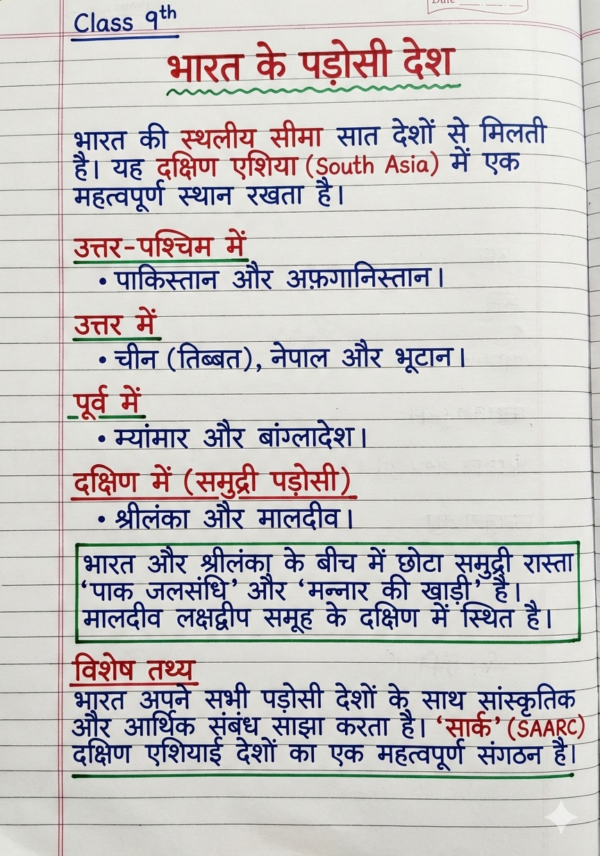 Date
Class 9th
भारत के पड़ोसी देश
भारत की स्थलीय सीमा सात देशों से मिलती
है। यह दक्षिण एशिया (South Asia) में एक
महत्वपूर्ण स्थान रखता है।
उत्तर-पश्चिम में
• पाकिस्तान और अफ़गानिस्तान।
उत्तर में
• चीन (तिब्बत), नेपाल और भूटान।
पूर्व में
• म्यांमार और बांग्लादेश।
दक्षिण में (समुद्री पड़ोसी)
• श्रीलंका और मालदीव।
भारत और श्रीलंका के बीच में छोटा समुद्री रास्ता
‘पाक जलसंधि’ और ‘मन्नार की खाड़ी’ है।
मालदीव लक्षद्वीप समूह के दक्षिण में स्थित है।
विशेष तथ्य
भारत अपने सभी पड़ोसी देशों के साथ सांस्कृतिक
और आर्थिक संबंध साझा करता है। ‘सार्क’ (SAARC)
दक्षिण एशियाई देशों का एक महत्वपूर्ण संगठन है।